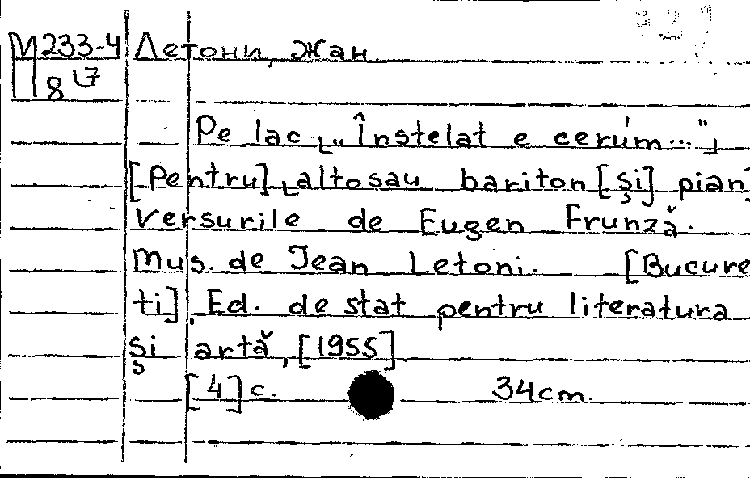 М233-4 Летони, Жан
8 17
Pe lac „Înstelat e cerúm..."
[Pentru] altosau bariton [și] pian
versurile de Eugen Frunză.
Mus. de Jean Letoni. [Bucure
ti], Ed. de stat pentru literatura
și artă, [1955]
[4] c. 34cm.